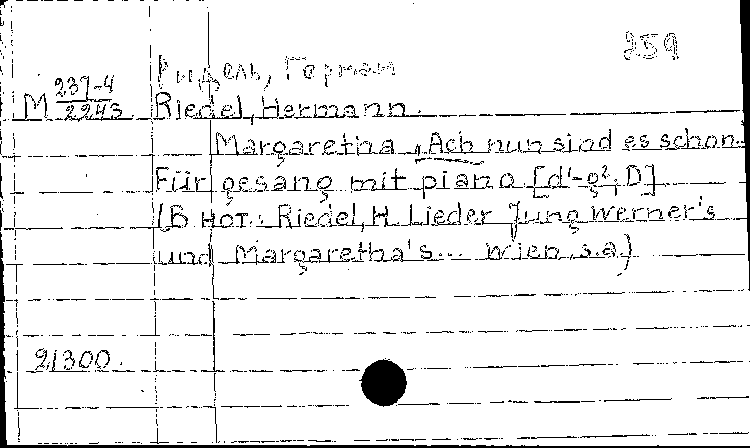 259
Ридель, Герман
M 237-4/2243 Riedel, Hermann.
Margaretha „Ach nun sind es schon..
Für gesang mit piano [d'-g²; D]
(В нот.: Riedel, H. Lieder Jung Werner's
und Margaretha's... Wien, s.a.)
21300.